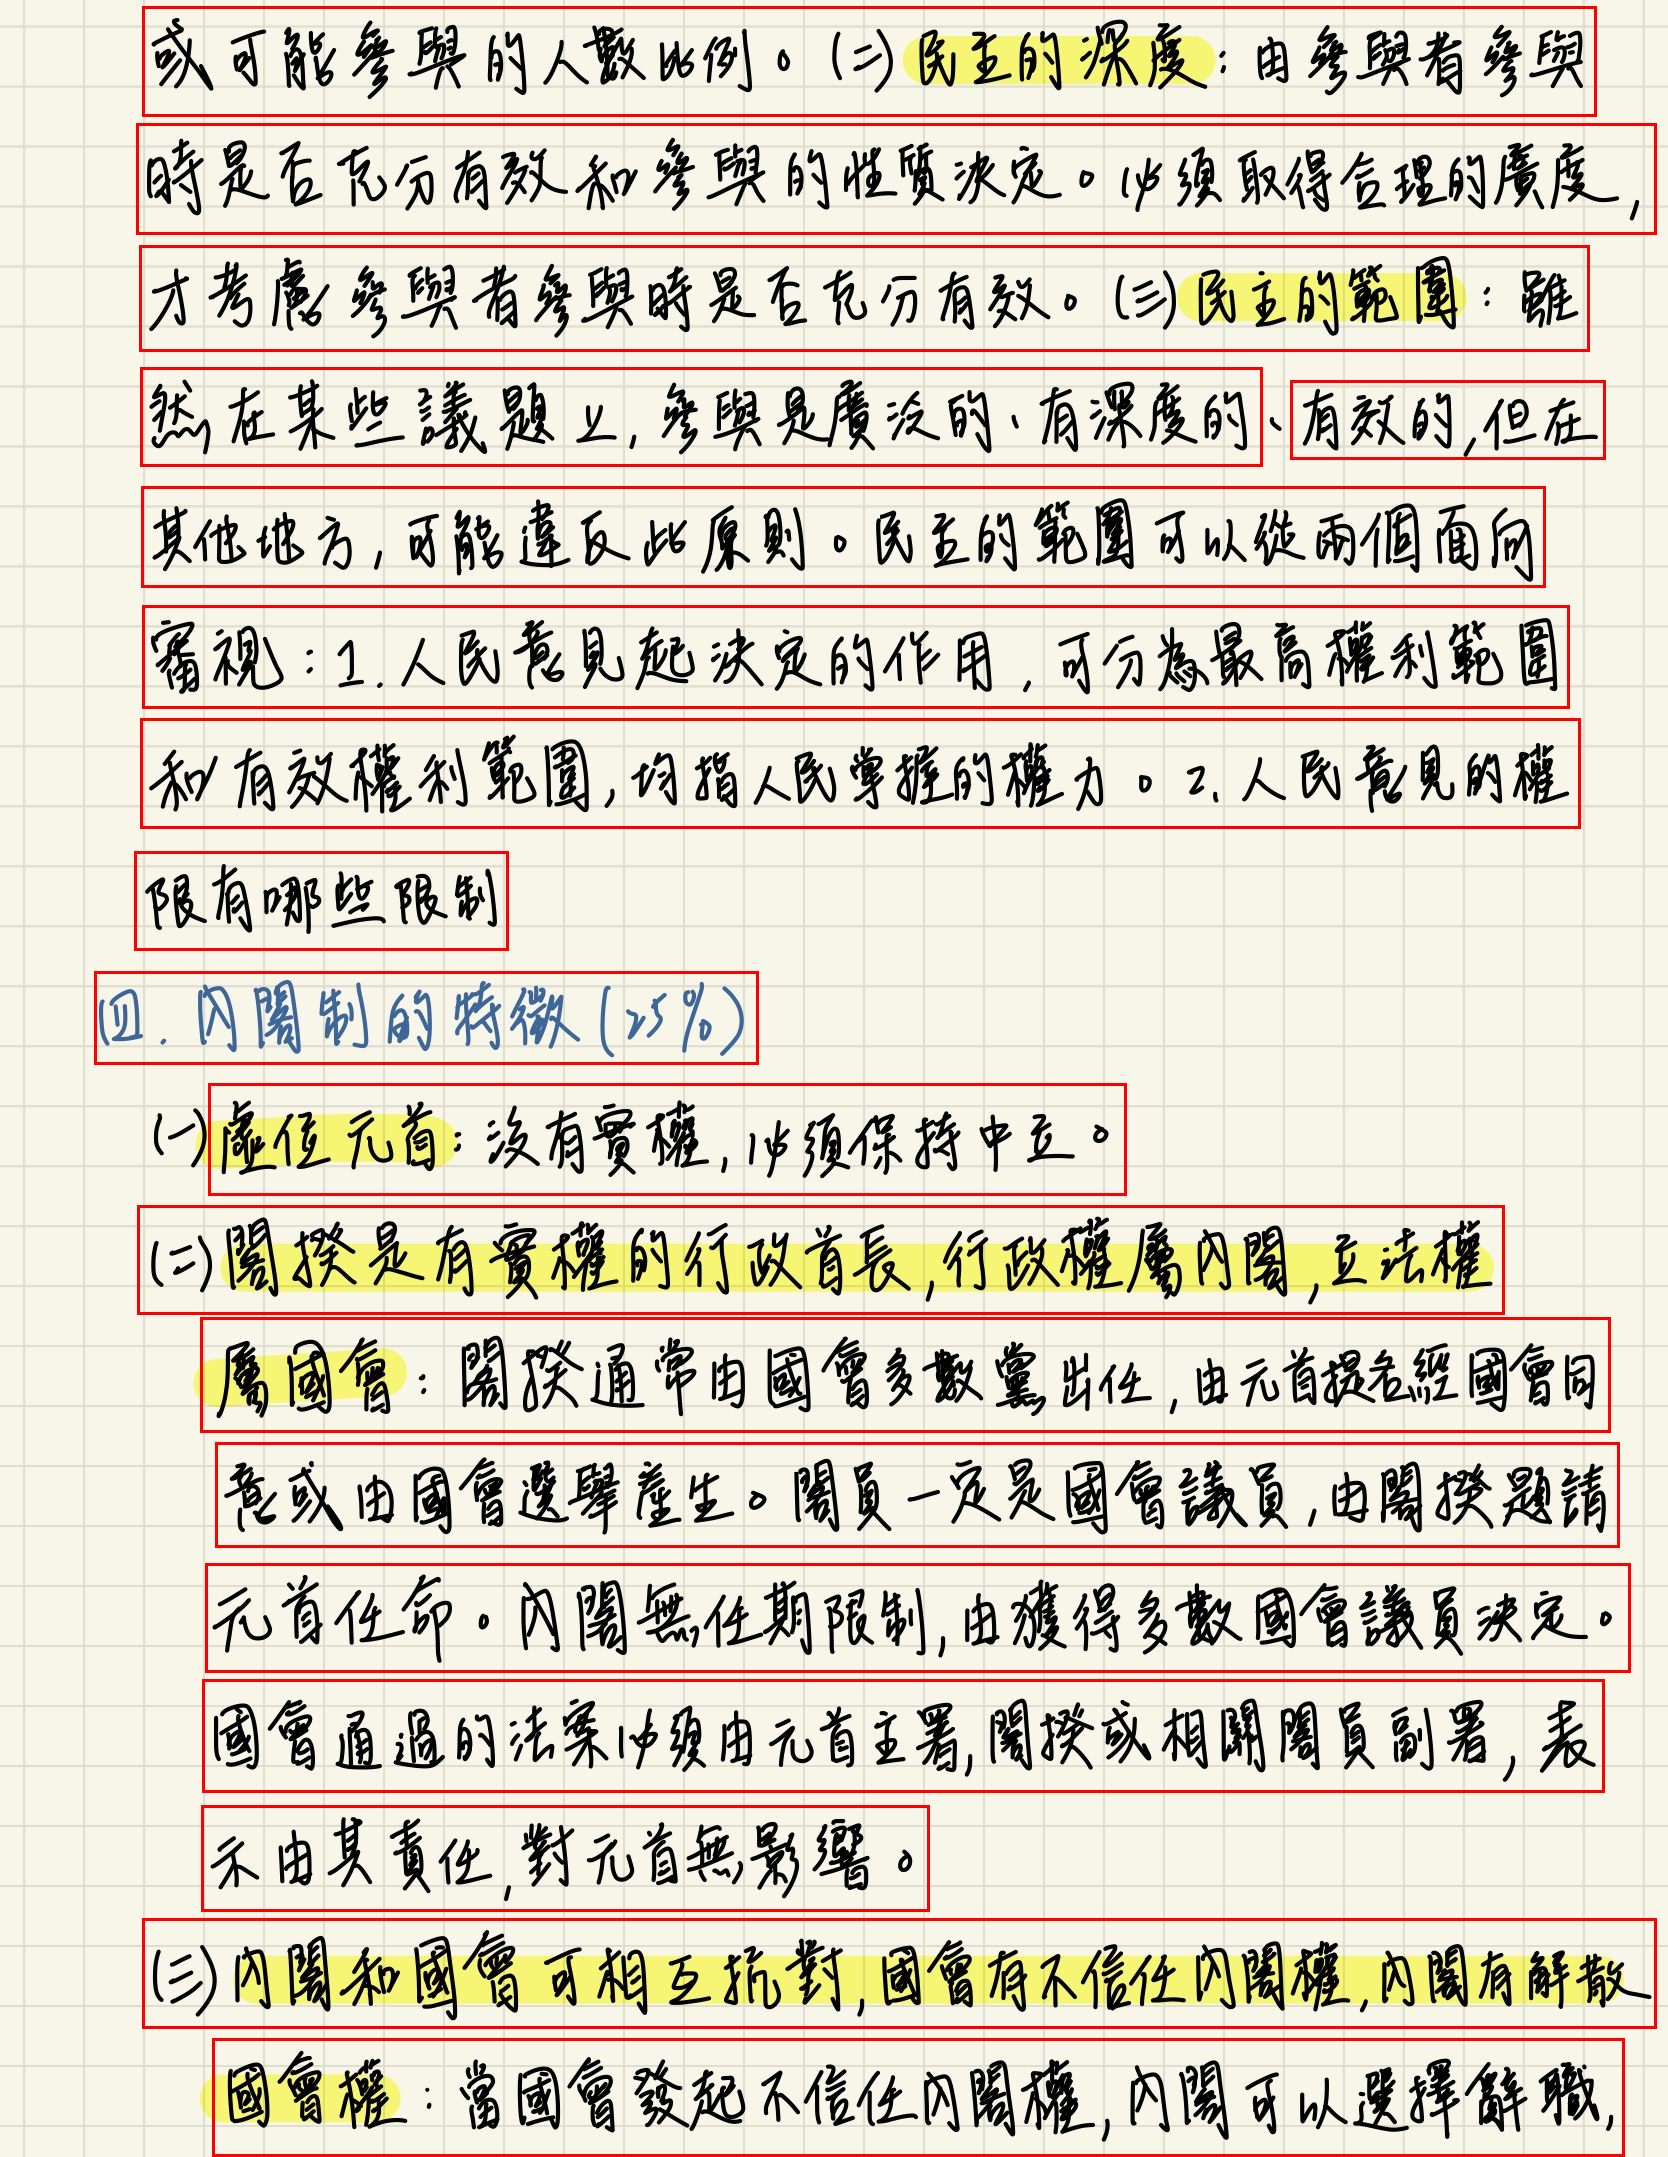 或可能參與的人數比例。(二)民主的深度：由參與者參與
時是否充分有效和參與的性質決定。必須取得合理的廣度,
才考慮參與者參與時是否充分有效。(三)民主的範圍：雖
然在某些議題上,參與是廣泛的、有深度的、有效的,但在
其他地方,可能違反此原則。民主的範圍可以從兩個面向
審視：1.人民意見起決定的作用,可分為最高權利範圍
和有效權利範圍,均指人民掌握的權力。2.人民意見的權
限有哪些限制
四.內閣制的特徵(25%)
(一)虛位元首：沒有實權,必須保持中立。
(二)閣揆是有實權的行政首長,行政權屬內閣,立法權
屬國會：閣揆通常由國會多數黨出任,由元首提名經國會同
意或由國會選舉產生。閣員一定是國會議員,由閣揆題請
元首任命。內閣無任期限制,由獲得多數國會議員決定。
國會通過的法案必須由元首主署,閣揆或相關閣員副署,表
示由其責任,對元首無影響。
(三)內閣和國會可相互抗對,國會有不信任內閣權,內閣有解散
國會權：當國會發起不信任內閣權,內閣可以選擇辭職,